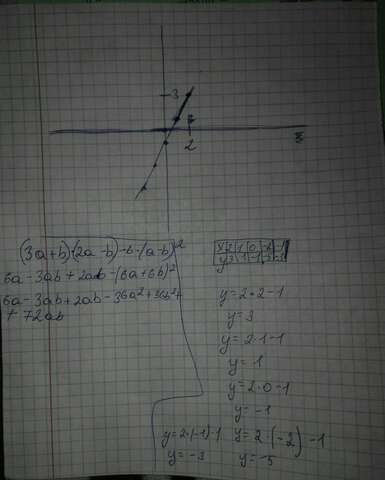 3
2
(3a+b)·(2a-b)-b·(a-b)²
6a-3ab+2ab-(6a+6b)²
6a-3ab+2ab-36a²+36b²+
+72ab
y=2·2-1
y=3
y=2·1-1
y=1
y=2·0-1
y=-1
y=2·(-1)-1
y=-3
y=2·(-2)-1
y=-5